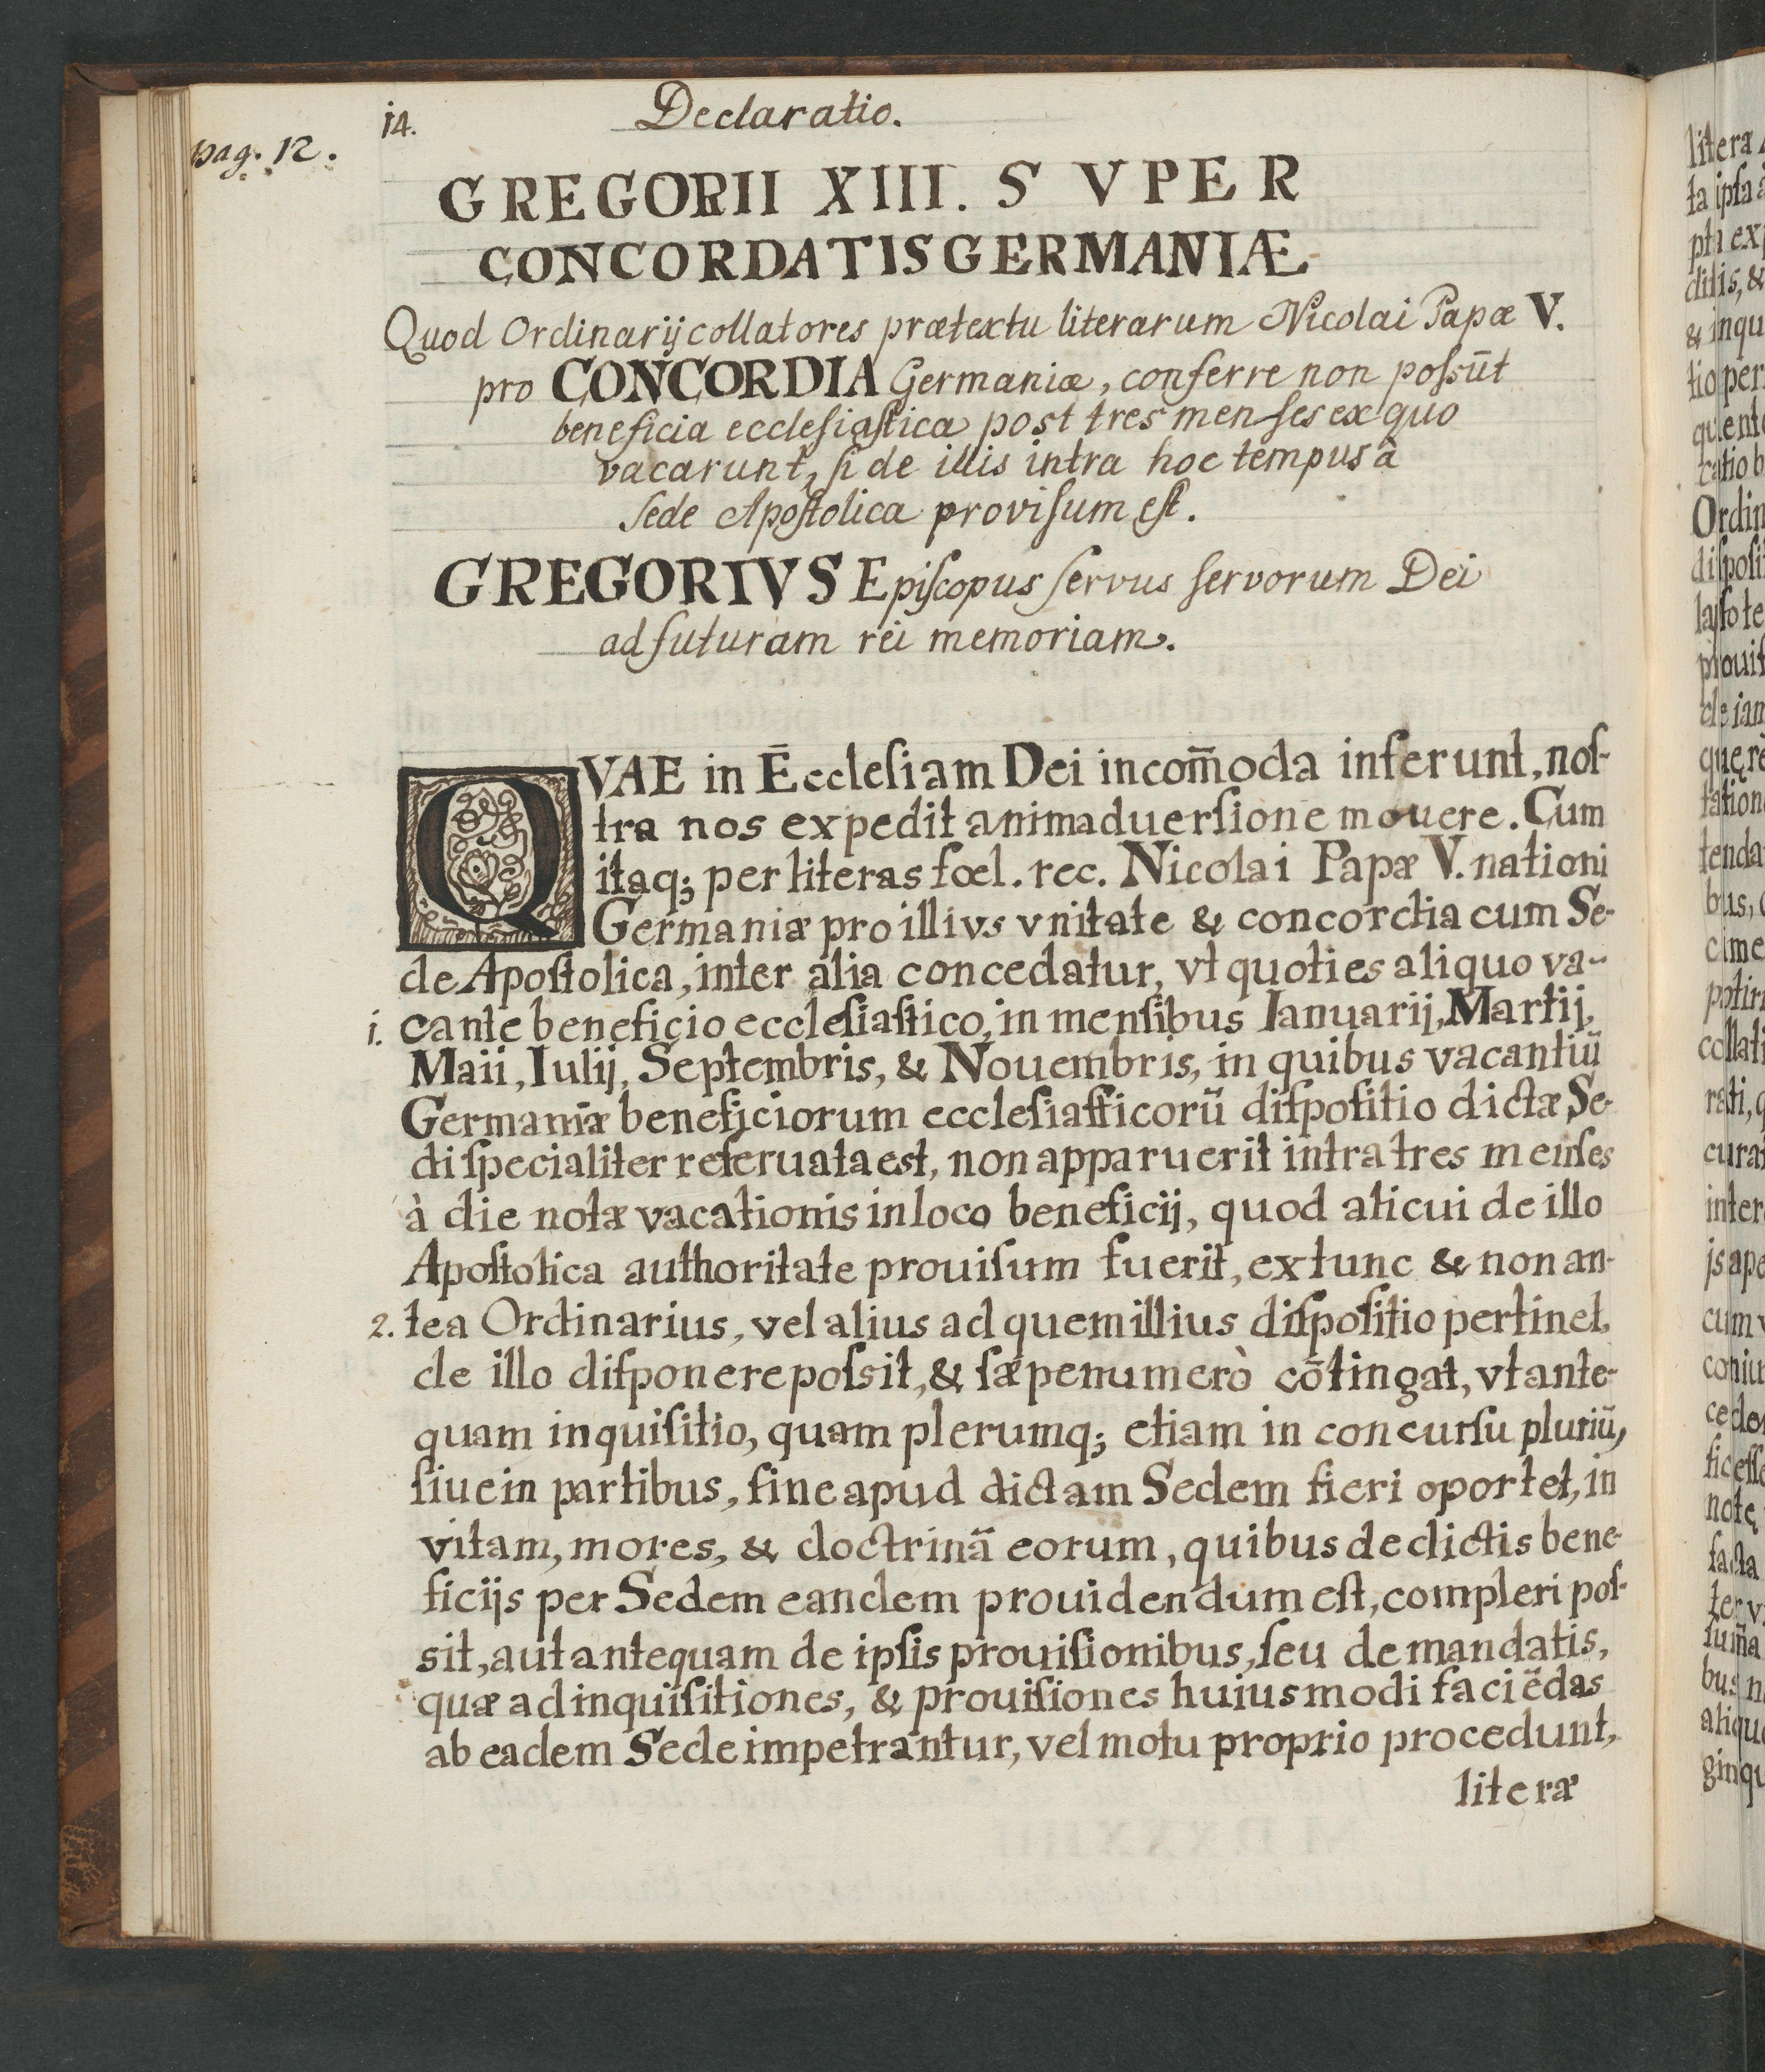 14. Declaratio.
pag. 12.
GREGORII XIII. SVPER
CONCORDATIS GERMANIÆ
Quod Ordinarij collatores prætextu literarum Nicolai Papæ V.
pro CONCORDIA Germaniæ, conferre non poſsūt
beneficia eccleſiaſtica post tres menſes ex quo
vacarunt, ſi de illis intra hoc tempus à
Sede Apoſtolica proviſum eſt.
GREGORIVS Epiſcopus ſervus ſervorum Dei
ad futuram rei memoriam.
QVAE in Ēccleſiam Dei incom̄oda inferunt, noſ-
tra nos expedit animaduerſione mouere. Cum
itaq; per literas fœl. rec. Nicolai Papæ V. nationi
Germaniæ pro illivs vnitate & concordia cum Se-
de Apoſtolica, inter alia concedatur, vt quoties aliquo va-
1. cante beneficio eccleſiaſtico, in menſibus Ianuarij, Martij,
Maii, Iulij, Septembris, & Nouembris, in quibus vacantiū
Germaniæ beneficiorum eccleſiaſticorū diſpoſitio dictæ Se-
di ſpecialiter reſeruata est, non apparuerit intra tres menſes
à die notæ vacationis in loco beneficij, quod alicui de illo
Apoſtolica authoritate prouiſum fuerit, ex tunc & non an-
2. tea Ordinarius, vel alius ad quem illius diſpoſitio pertinet,
de illo diſponere poſsit, & ſæpenumerò cōtingat, vt ante-
quam inquiſitio, quam plerumq; etiam in concurſu pluriū,
ſiue in partibus, ſine apud dictam Sedem fieri oportet, in
vitam, mores, & doctrinā eorum, quibus de dictis bene-
ficijs per Sedem eandem prouidendum eſt, compleri poſ-
sit, aut antequam de ipſis prouiſionibus, ſeu de mandatis,
quæ ad inquiſitiones, & prouiſiones huiusmodi faciēdas
ab eadem Sede impetrantur, vel motu proprio procedunt,
literæ